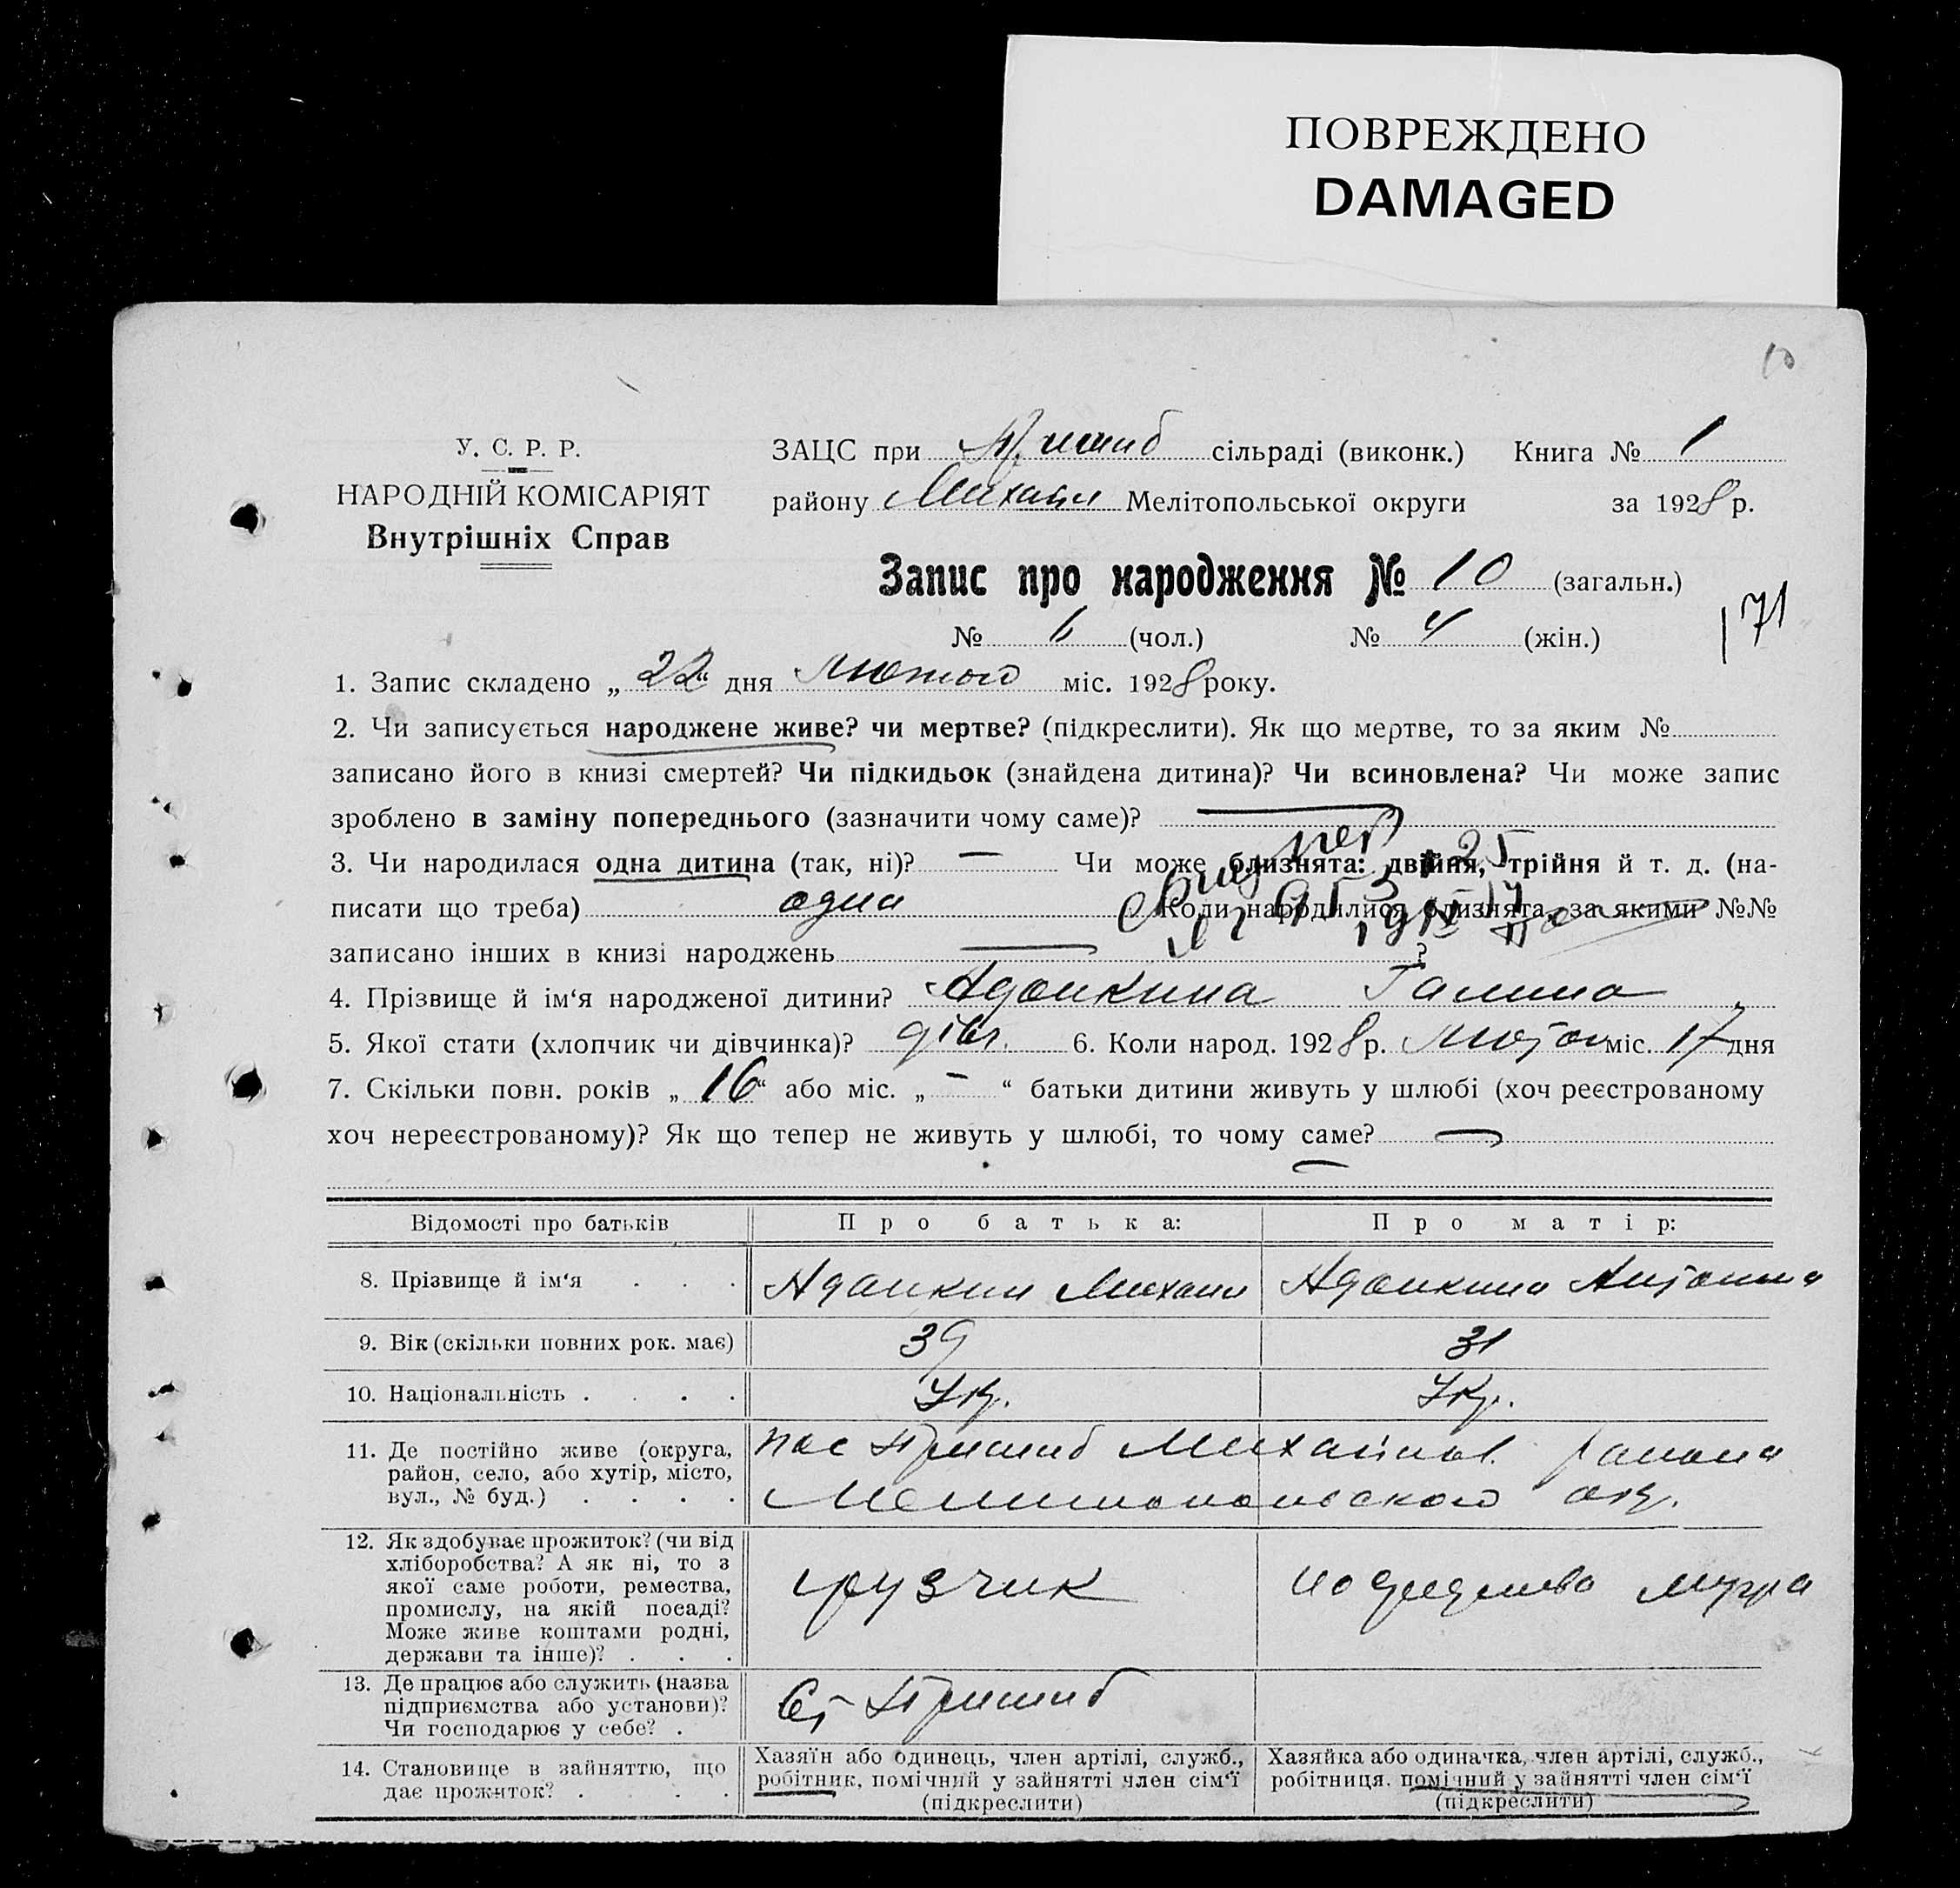 ПОВРЕЖДЕНО
DAMAGED
10
У. С. Р. Р.
НАРОДНІЙ КОМІСАРІЯТ
Внутрішніх Справ
ЗАЦС при Пришиб сільраді (виконк.) Книга № 1
району Михайл Мелітопольської округи за 1928 р.
Запис про народження № 10 (загальн.)
№ 6 (чол.) № 4 (жін.)
171
1. Запис складено „ 22 “ дня Лютого міс. 1928 року.
2. Чи записується народжене живе? чи мертве? (підкреслити). Як що мертве, то за яким №
записано його в книзі смертей? Чи підкидьок (знайдена дитина)? Чи всиновлена? Чи може запис
зроблено в заміну попереднього (зазначити чому саме)? —
3. Чи народилася одна дитина (так, ні)? — Чи може близнята: двійня, трійня й т. д. (на-
писати що треба) одна Коли народилися близнята, за якими №№
записано інших в книзі народжень — ?
4. Прізвище й ім‘я народженої дитини? Адонкина Галина
5. Якої стати (хлопчик чи дівчинка)? дівч. 6. Коли народ. 1928 р. Лютого міс. 17 дня
7. Скільки повн. років „ 16 “ або міс. „ — “ батьки дитини живуть у шлюбі (хоч реєстрованому
хоч нереєстрованому)? Як що тепер не живуть у шлюбі, то чому саме? —
—
Відомості про батьків Про батька: Про матір:
8. Прізвище й ім‘я . . . Адонкин Михаил Адонкина Антонина
9. Вік (скільки повних рок. має) 39 31
10. Національність . . . . Укр. Укр.
11. Де постійно живе (округа,
район, село, або хутір, місто,
вул., № буд.) . . . .
пос Пришиб Михайлов. района
Мелитопольского окр.
12. Як здобуває прожиток? (чи від
хліборобства? А як ні, то з
якої саме роботи, ремества,
промислу, на якій посаді?
Може живе коштами родні,
держави та інше)? . . .
грузчик мужа
13. Де працює або служить (назва
підприємства або установи)?
Чи господарює у себе? .
Ст Пришиб
14. Становище в зайняттю, що
дає прожиток? . . . .
Хазяїн або одинець, член артілі, служб.,
робітник, помічний у зайнятті член сім‘ї
(підкреслити)
Хазяйка або одиначка, член артілі, служб.,
робітниця. помічний у зайнятті член сім‘ї
(підкреслити)